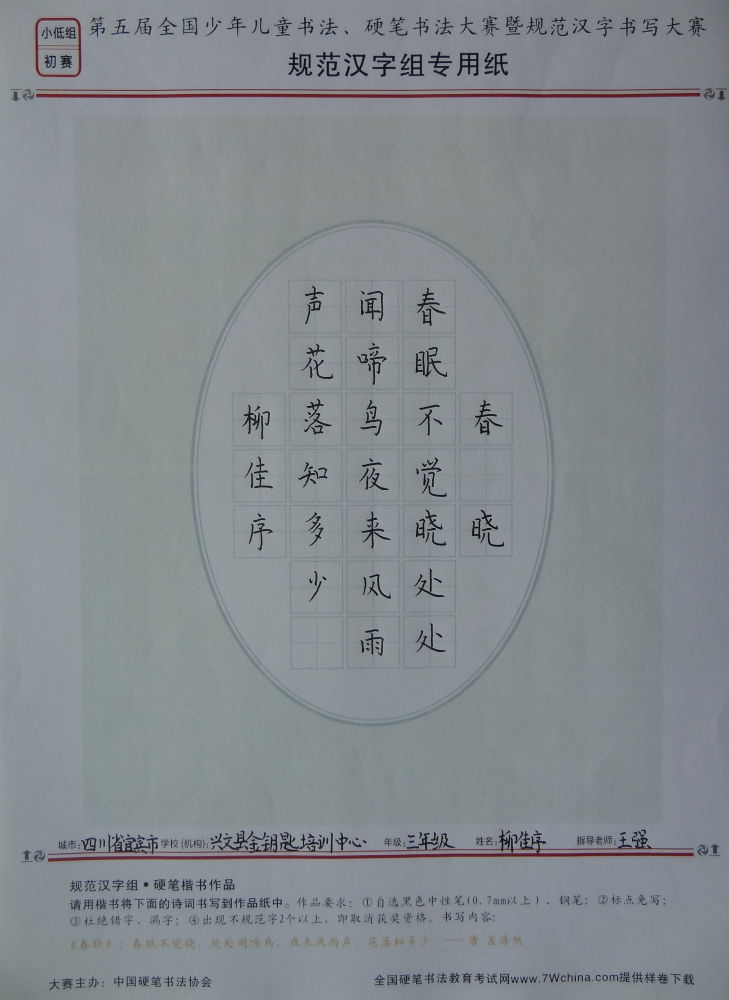 小低组
初赛
第五届全国少年儿童书法、硬笔书法大赛暨规范汉字书写大赛
规范汉字组专用纸
春晓
春眠不觉晓处处
闻啼鸟夜来风雨
声花落知多少
柳佳序
城市:四川省宜宾市 学校(机构):兴文县金钥匙培训中心 年级:三年级 姓名:柳佳序 指导老师:王强
规范汉字组·硬笔楷书作品
请用楷书将下面的诗词书写到作品纸中。作品要求:①自选黑色中性笔(0.7mm以上)、钢笔;②标点免写;
③杜绝错字、漏字;④出现不规范字2个以上,即取消获奖资格。书写内容:
《春晓》:春眠不觉晓,处处闻啼鸟。夜来风雨声,花落知多少。——唐 孟浩然
大赛主办:中国硬笔书法协会
全国硬笔书法教育考试网www.7Wchina.com提供样卷下载